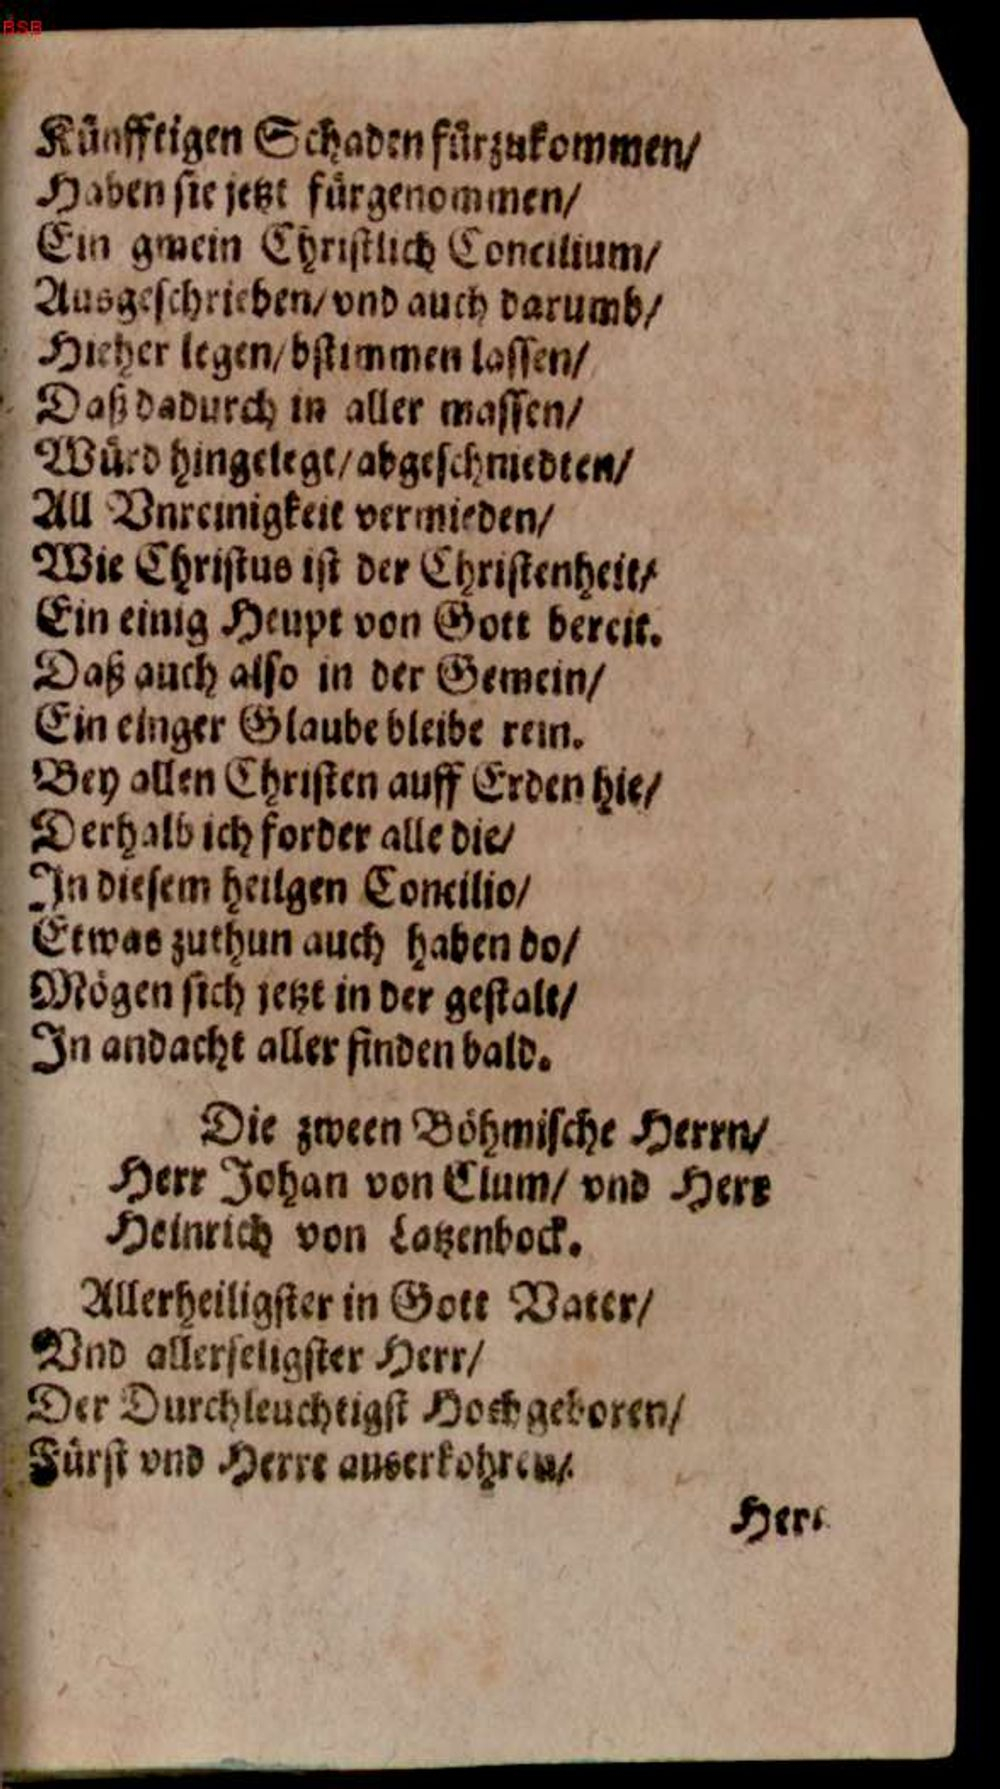 BSB
Künfftigen Schaden fürzukommen/
Haben sie jetzt fürgenommen/
Ein gmein Christlich Concilium/
Ausgeschrieben/ vnd auch darumb/
Hieher legen/ bstimmen lassen/
Daß dadurch in aller massen/
Würd hingelegt/ abgeschniedten/
All Vnreinigkeit vermieden/
Wie Christus ist der Christenheit/
Ein einig Heupt von Gott bereit.
Daß auch also in der Gemein/
Ein einger Glaube bleibe rein.
Bey allen Christen auff Erden hie/
Derhalb ich forder alle die/
In diesem heilgen Concilio/
Etwas zuthun auch haben do/
Mögen sich jetzt in der gestalt/
In andacht aller finden bald.
Die zween Böhmische Herrn/
Herr Johan von Clum/ vnd Herr
Heinrich von Latzenbock.
Allerheiligster in Gott Vatter/
Vnd allerseligster Herr/
Der Durchleuchtigst Hochgeboren/
Fürst vnd Herre auserkohren/
Herr